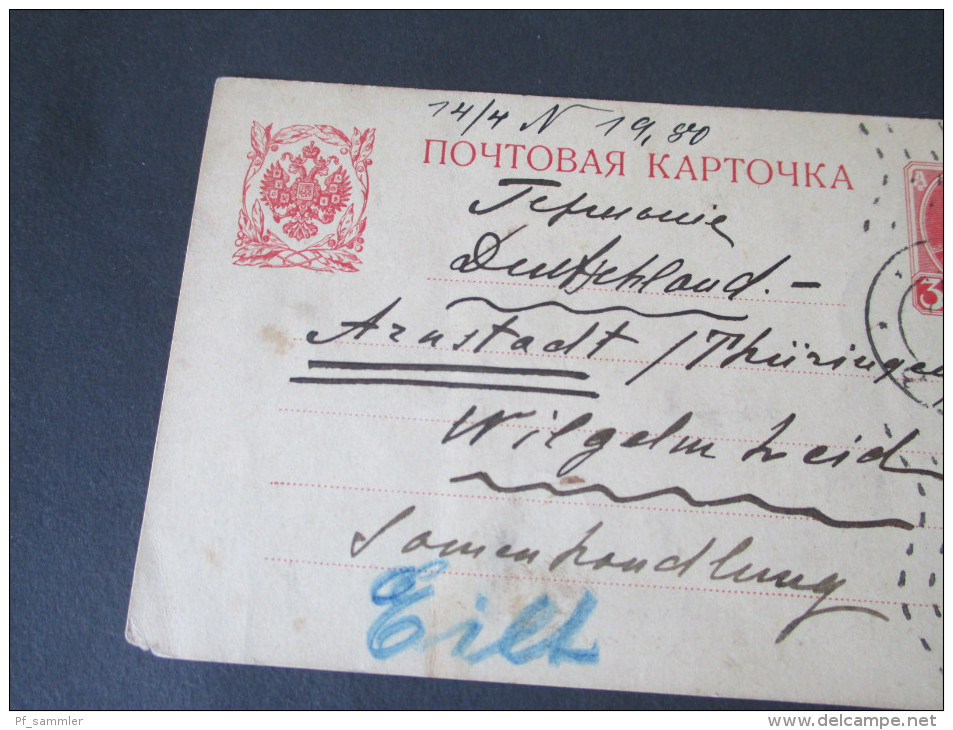 14/4 N 19,80
ПОЧТОВАЯ КАРТОЧКА
Deutschland.-
3
Arnstadt / Thüringen
Wilgelm
Samenhandlung
Eilt
Pf_sammler
www.delcampe.net